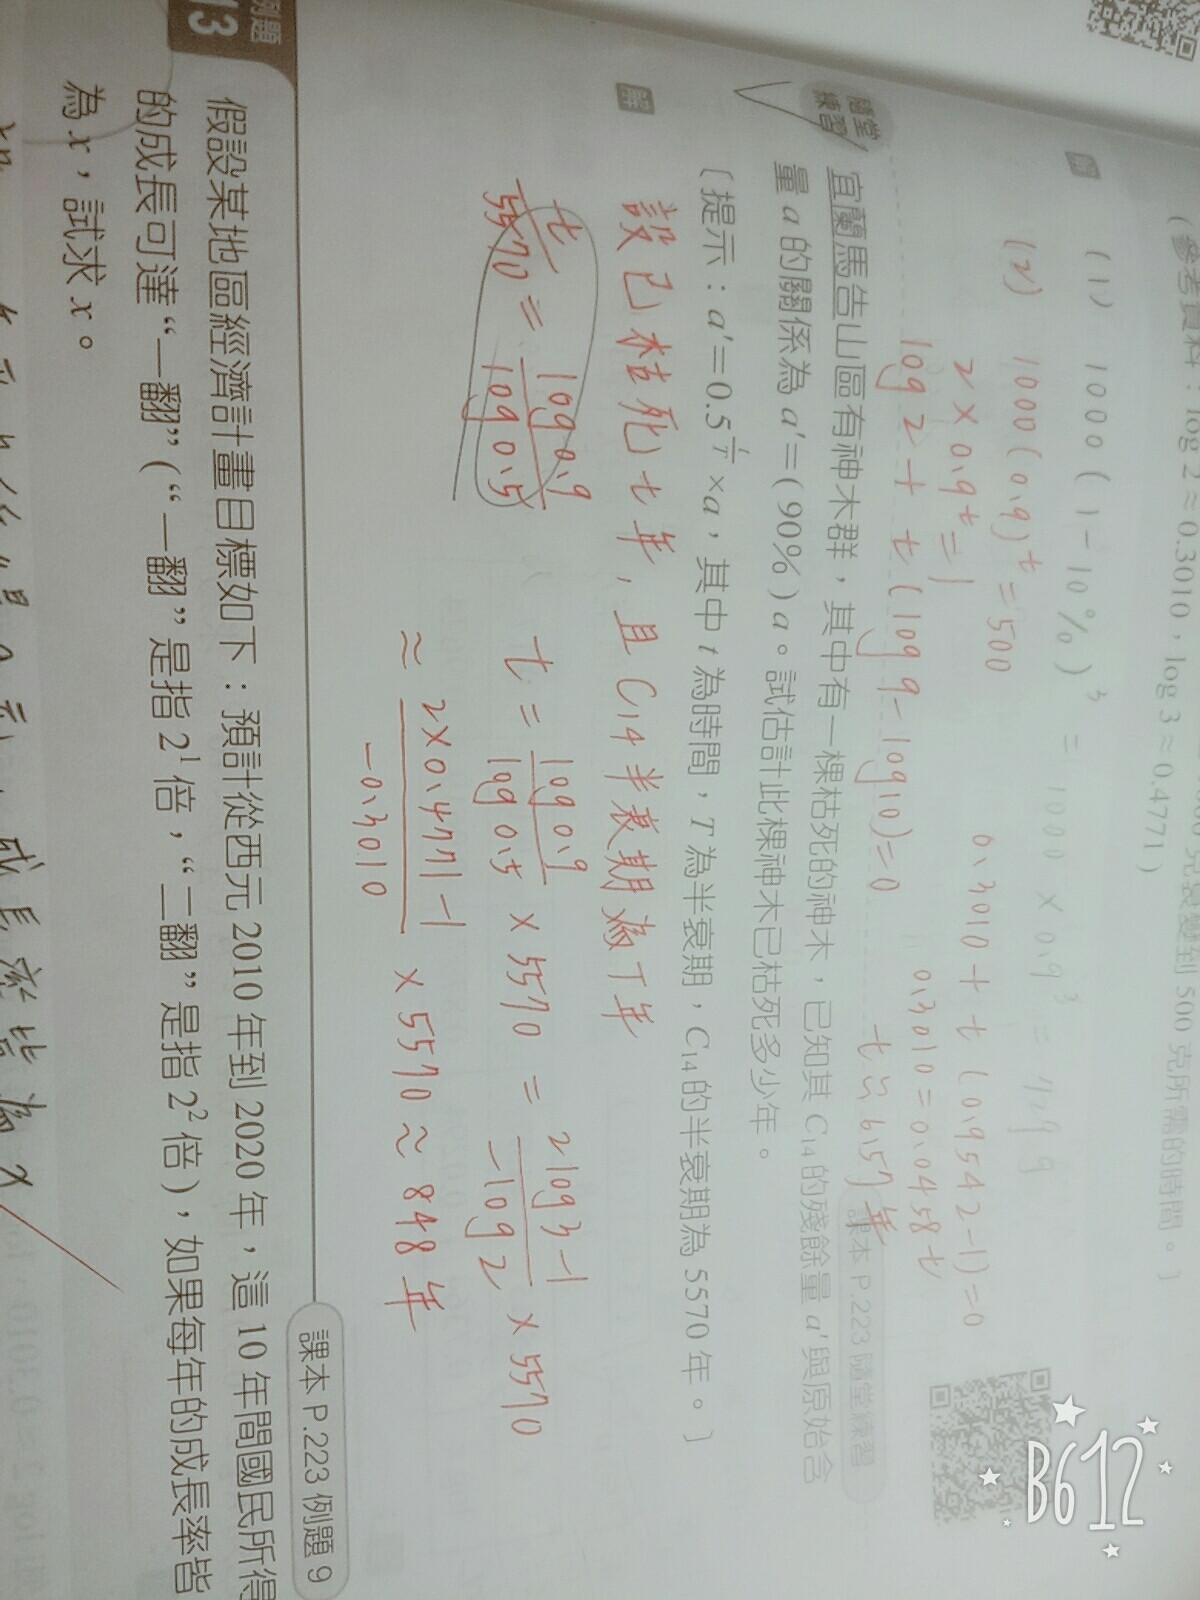 (參考資料：log 2≈0.3010，log 3≈0.4771)
500 克所需的時間。〕
解
(1) 1000(1-10%)³ = 1000×0.9³ = 729
(2) 1000(0.9)^t = 500
2×0.9^t = 1
log 2 + t(log 9 - log 10) = 0
0.3010 + t(0.9542-1) = 0
0.3010 = 0.0458t
t≈6.57年
課本 P.223 隨堂練習
隨堂練習
宜蘭馬告山區有神木群，其中有一棵枯死的神木，已知其 C₁₄ 的殘餘量 a′與原始含
量 a 的關係為 a′=(90%)a。試估計此棵神木已枯死多少年。
〔提示：a′=0.5^(t/T)×a，其中 t 為時間，T 為半衰期，C₁₄ 的半衰期為 5570 年。〕
解
設已枯死 t 年, 且 C14 半衰期為 T 年
t/5570 = log0.9/log0.5
t = log0.9/log0.5 × 5570 = 2log3-1/-log2 × 5570
≈ 2×0.4771-1/-0.3010 × 5570 ≈ 848 年
例題 13
課本 P.223 例題 9
假設某地區經濟計畫目標如下：預計從西元 2010 年到 2020 年，這 10 年間國民所得
的成長可達“一翻”(“一翻”是指 2¹ 倍，“二翻”是指 2² 倍)，如果每年的成長率皆
為 x，試求 x。
成長率皆為 x
B612